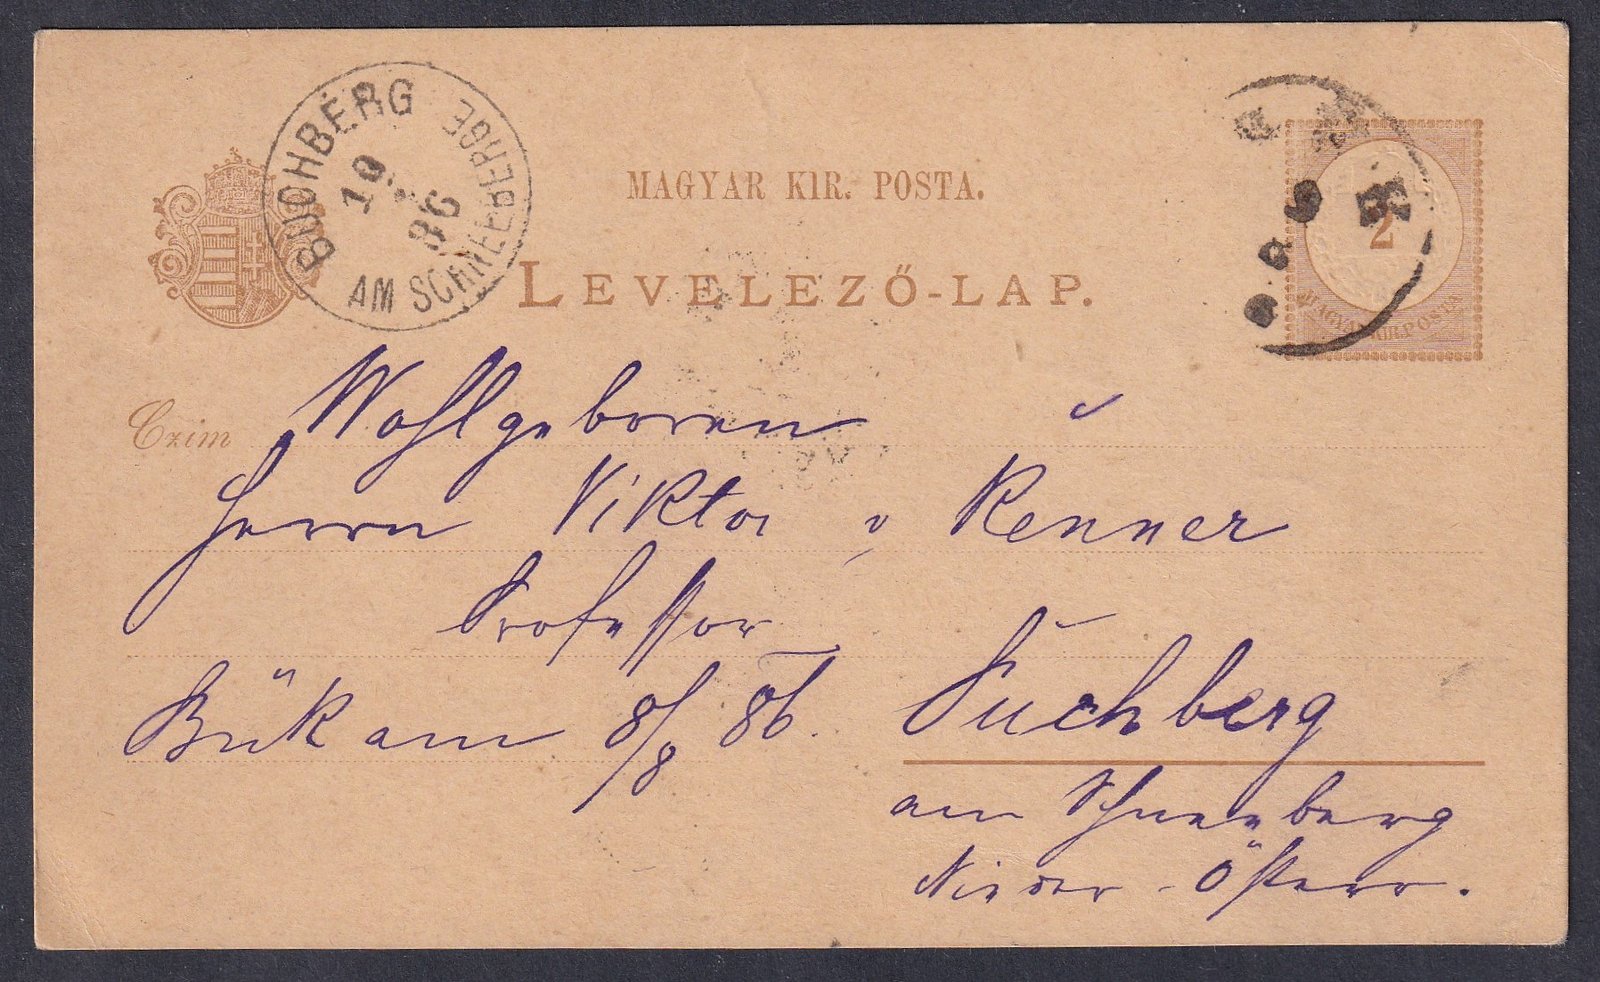 BUCHBERG
AM SCHNEEBERGE
10.
86
MAGYAR KIR. POSTA.
LEVELEZŐ-LAP.
2
MAGYAR KIR. POSTA
Czim
Wohlgeboren
Herrn Viktor v. Renner
Professor
Bük am 8/8 86.
Puchberg
am Schneeberg
Nieder-Österr.